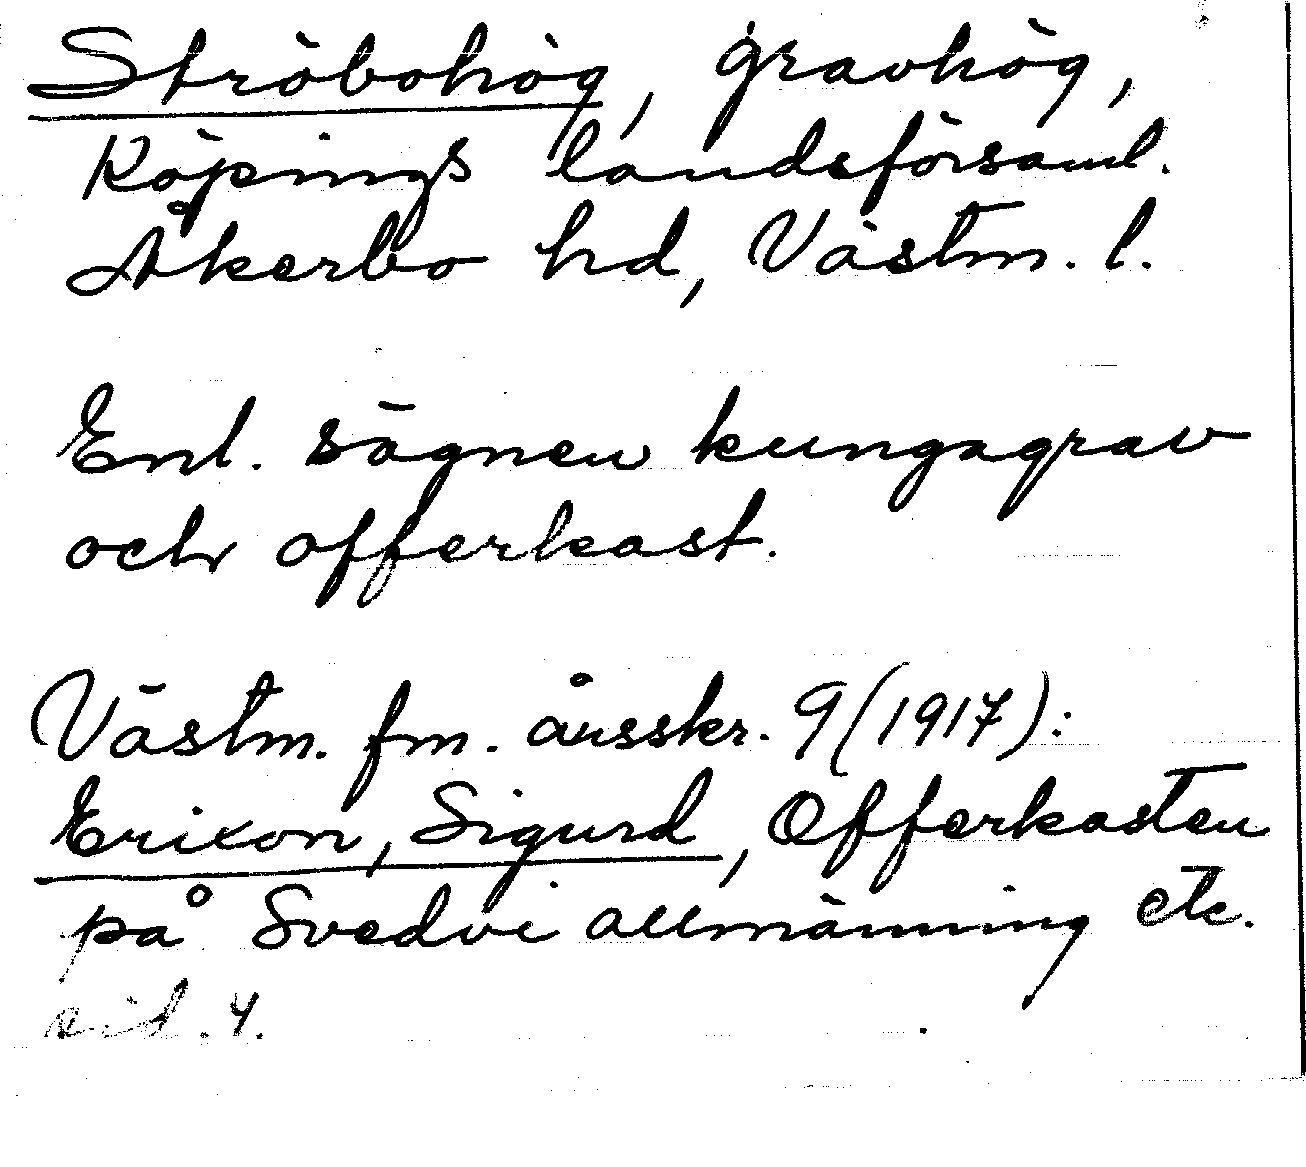 Ströbohög, gravhög,
Köpings landsförsaml.
Åkerbo hd, Västm. l.
Enl. sägnen kungagrav
och offerkast.
Västm. fm. årsskr. 9 (1917):
Erixon, Sigurd, Offerkasten
på Svedvi allmänning etc.
sid. 4.